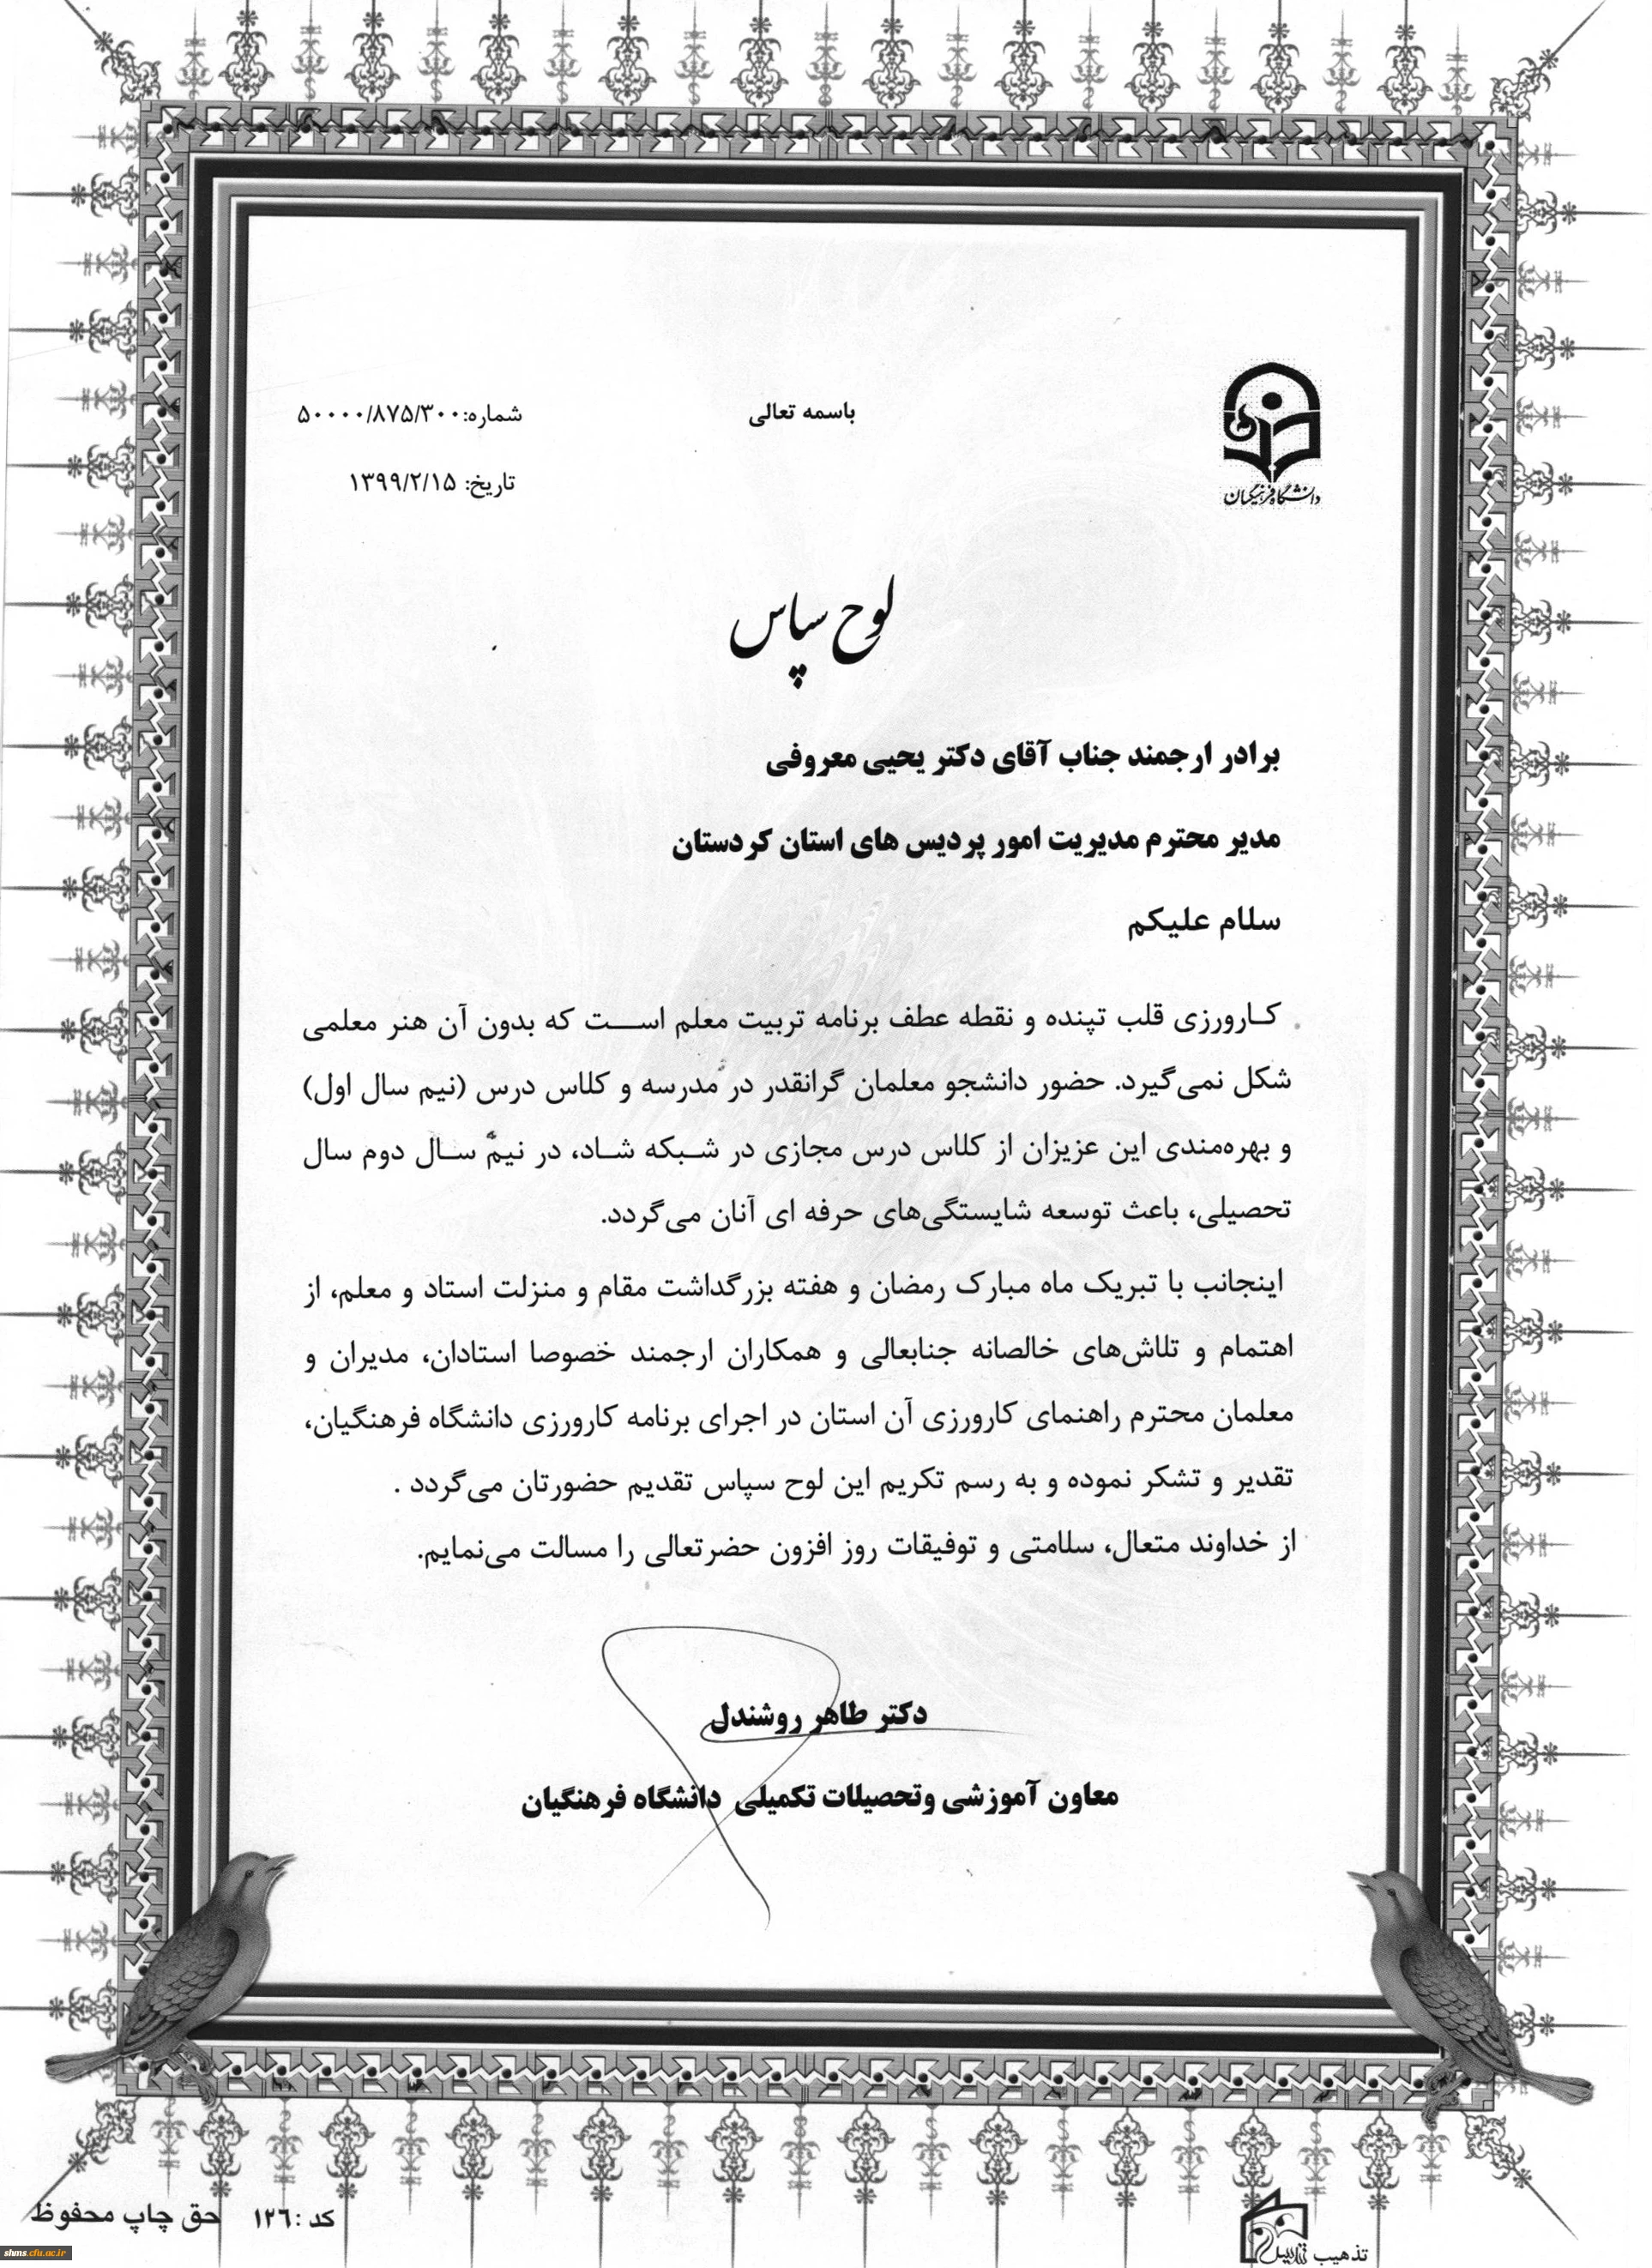 باسمه تعالی
شماره:۵۰۰۰۰/۸۷۵/۳۰۰
تاریخ: ۱۳۹۹/۲/۱۵
دانشگاه فرهنگیان
لوح سپاس
برادر ارجمند جناب آقای دکتر یحیی معروفی
مدیر محترم مدیریت امور پردیس های استان کردستان
سلام علیکم
کارورزی قلب تپنده و نقطه عطف برنامه تربیت معلم است که بدون آن هنر معلمی
شکل نمی‌گیرد. حضور دانشجو معلمان گرانقدر در مدرسه و کلاس درس (نیم سال اول)
و بهره‌مندی این عزیزان از کلاس درس مجازی در شبکه شاد، در نیم سال دوم سال
تحصیلی، باعث توسعه شایستگی‌های حرفه ای آنان می‌گردد.
اینجانب با تبریک ماه مبارک رمضان و هفته بزرگداشت مقام و منزلت استاد و معلم، از
اهتمام و تلاش‌های خالصانه جنابعالی و همکاران ارجمند خصوصا استادان، مدیران و
معلمان محترم راهنمای کارورزی آن استان در اجرای برنامه کارورزی دانشگاه فرهنگیان،
تقدیر و تشکر نموده و به رسم تکریم این لوح سپاس تقدیم حضورتان می‌گردد .
از خداوند متعال، سلامتی و توفیقات روز افزون حضرتعالی را مسالت می‌نمایم.
دکتر طاهر روشندل
معاون آموزشی وتحصیلات تکمیلی دانشگاه فرهنگیان
کد :۱۲۶ حق چاپ محفوظ
تذهیب
shms.cfu.ac.ir